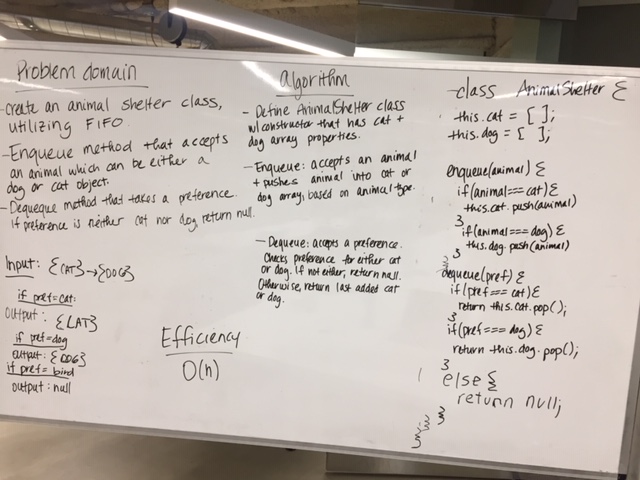 Problem domain
-create an animal shelter class,
utilizing FIFO.
- Enqueue method that accepts
an animal which can be either a
dog or cat object.
- Dequeque method that takes a preference.
If preference is neither cat nor dog return null.
Input: {CAT}→{DOG}
if pref=cat:
Output: {CAT}
if pref=dog
output: {DOG}
if pref= bird
output: null
Efficiency
O(n)
algorithm
- Define AnimalShelter class
w/constructor that has cat +
dog array properties.
- Enqueue: accepts an animal
+ pushes animal into cat or
dog array, based on animal type.
- Dequeue: accepts a preference.
Checks preference for either cat
or dog. If not either, return null.
Otherwise, return last added cat
or dog.
-class AnimalShelter {
this.cat = [ ];
this.dog = [ ];
enqueue(animal) {
if(animal===cat){
this.cat.push(animal)
}
if(animal===dog){
this.dog.push(animal)
}
}
dequeue(pref) {
if(pref === cat){
return this.cat.pop();
}
if(pref === dog){
return this.dog.pop();
}
else{
return null;
}
}
}
}